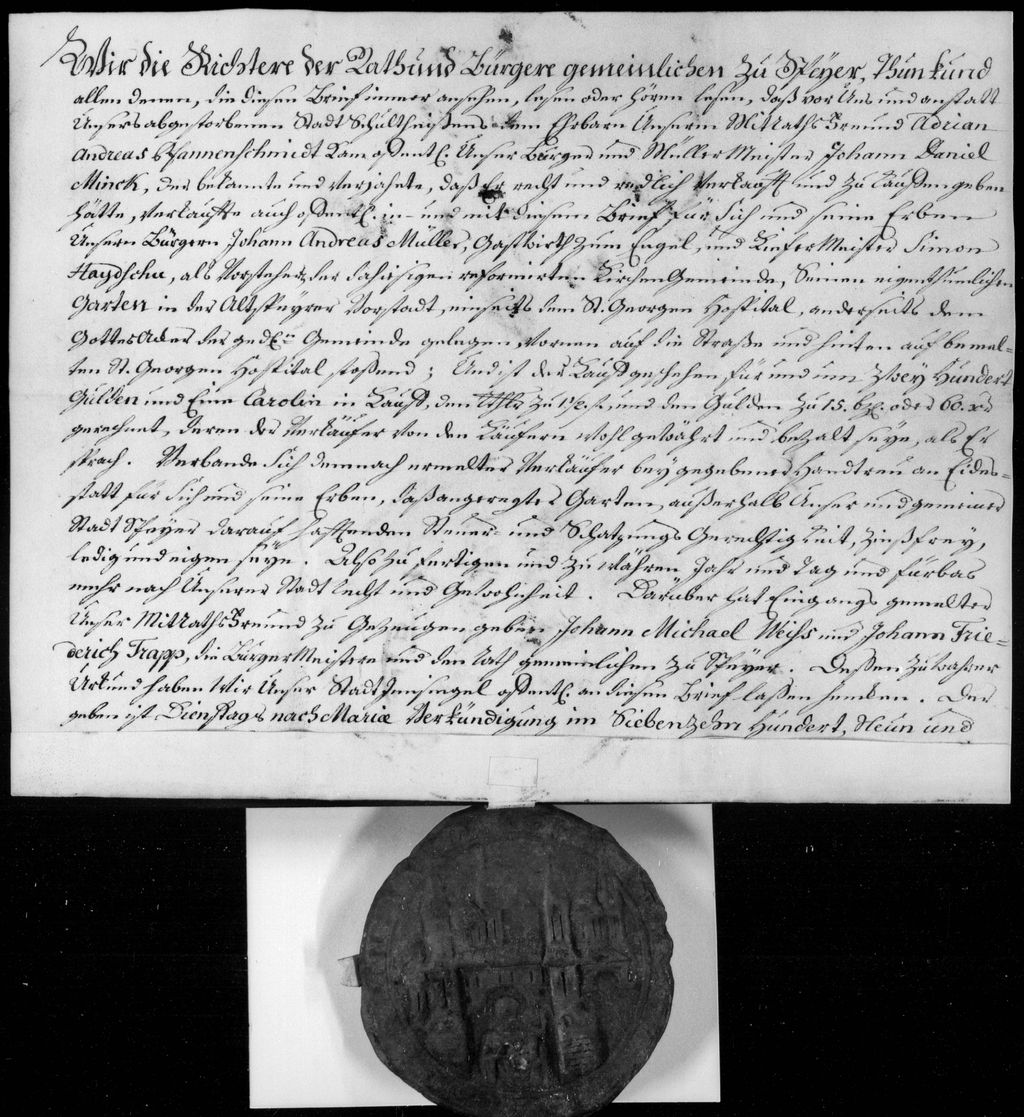 Wir die Richtere der Rath und Bürgere gemeinlichen zu Speyer, Thun kund
allen denen, die diesen Brief immer ansehen, lesen oder hören lesen, daß vor Uns und anstatt
Unsers abgestorbenen Stadt Schultheißens dem Ehrbarn Unserm MitRaths Freund Adrian
Andreas Pfannenschmidt Kam offentl. Unser Bürger und Müller Meister Johann Daniel
Minck, der bekannte und verjahete, daß Er recht und redlich verkaufft und zu kauffen geben
hätte, verkauffte auch offentl. in- und mit diesem Brief für Sich und seine Erben
Unsern Bürgern Johann Andreas Müller, Gastwirth zum Engel, und Kiefer Meister Simon
Haydschu, als Vorsteher der dahiesigen reformirten Kirchen Gemeinde, Seinen eigenthumlichen
Garten in der Altspeyrer Vorstadt, einseits dem St. Georgen Hospital, anderseits dem
Gottes Acker der ged. Gemeinde gelegen, vornen auf die Straße und hinten auf bemel-
ten St. Georgen Hospital stoßend; Und ist der Kauff geschehen, für und um Zwey Hundert
Gulden und Eine Carolin in Kauff, den zu und den Gulden zu 15. bz. oder 60. xr
gerechnet, deren der Verkäufer von den Käufern wohl gewährt und bezalt seye, als Er
sprach. Verbande Sich demnach ermelter Verkäufer bey gegebener Handtreu an Eides-
statt für Sich und seine Erben, daß angeregter Garten, außerhalb Unser und gemeiner
Stadt Speyer darauf hafftenden Steuer- und Schatzungs Gerechtigkeit, Zinß frey,
ledig und eigen seye. Also zu fertigen und zu währen Jahr und Tag und fürbas
mehr nach Unserer Stadt Recht und Gewohnheit. Darüber hat Eingangs gemelter
Unser MitRaths Freund zu Gezeugen geben Johann Michael Weiss und Johann Frie-
derich Trapp, die Bürger Meistere und den Rath gemeinlichen zu Speyer. Dessen zu wahrer
Urkund haben Wir Unser Stadt Innsiegel offentl. an diesen Brief lassen hencken. Der
geben ist Dienstags nach Mariæ Verkündigung im Siebenzehn Hundert, Neun und